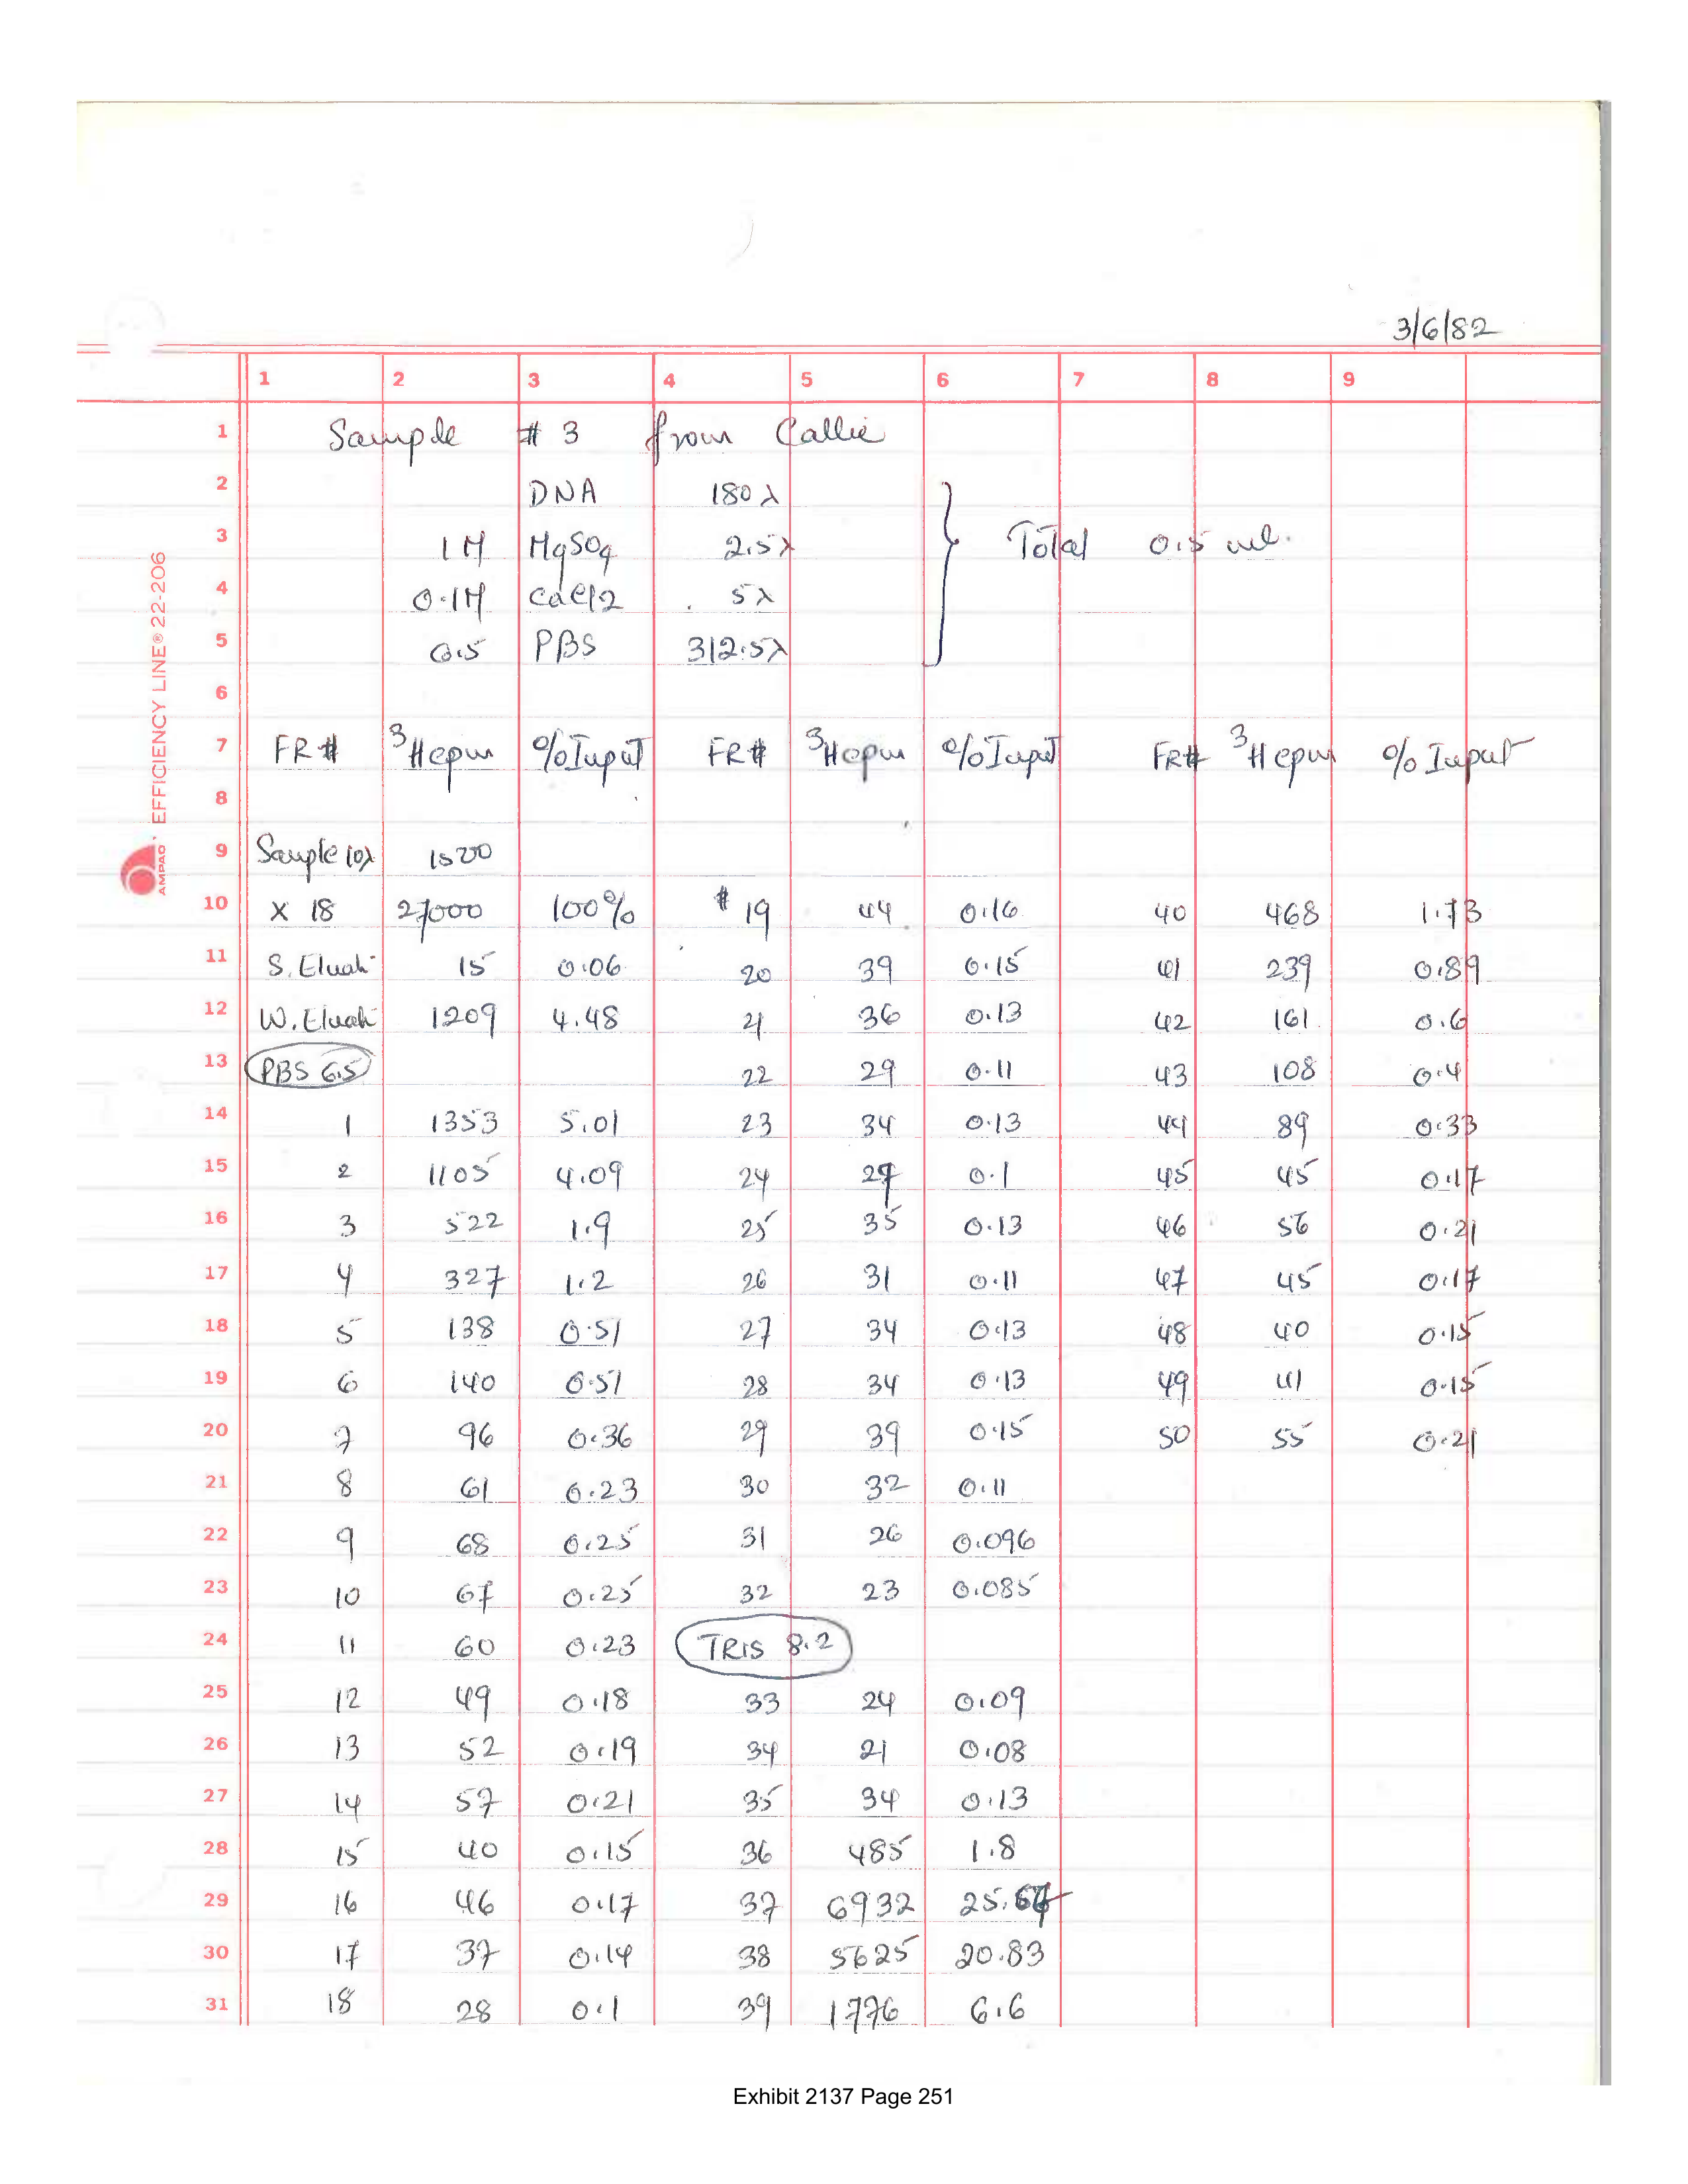 3/6/82
1 2 3 4 5 6 7 8 9
1 Sample # 3 from Callie
2 DNA 180 λ
3 1 M MgSO4 2.5λ Total 0.5 ml.
4 0.1M CaCl2 5λ
5 0.5 PBS 312.5λ
6
7 FR # 3Hcpm % Input FR# 3Hcpm % Input FR# 3Hcpm % Input
8
9 Sample 10λ 1500
10 X 18 27000 100% # 19 44 0.16 40 468 1.73
11 S. Eluat 15 0.06 20 39 0.15 41 239 0.89
12 W. Eluat 1209 4.48 21 36 0.13 42 161 0.6
13 PBS 6.5 22 29 0.11 43 108 0.4
14 1 1353 5.01 23 34 0.13 44 89 0.33
15 2 1105 4.09 24 27 0.1 45 45 0.17
16 3 522 1.9 25 35 0.13 46 56 0.21
17 4 327 1.2 26 31 0.11 47 45 0.17
18 5 138 0.51 27 34 0.13 48 40 0.15
19 6 140 0.51 28 34 0.13 49 41 0.15
20 7 96 0.36 29 39 0.15 50 55 0.21
21 8 61 0.23 30 32 0.11
22 9 68 0.25 31 26 0.096
23 10 67 0.25 32 23 0.085
24 11 60 0.23 TRIS 8.2
25 12 49 0.18 33 24 0.09
26 13 52 0.19 34 21 0.08
27 14 57 0.21 35 34 0.13
28 15 40 0.15 36 485 1.8
29 16 46 0.17 37 6932
30 17 37 0.14 38 5625 20.83
31 18 28 0.1 39 1776 6.6
AMPAD EFFICIENCY LINE® 22-206
Exhibit 2137 Page 251